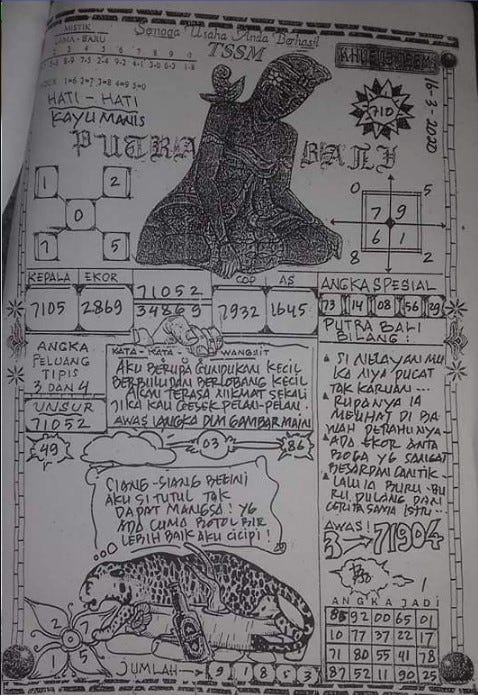 MISTIK
Semoga Usaha Anda Berhasil
TSSM
16-3-2020
710
1=6 2=7 3=8 4=9 5=0
HATI - HATI
KAYU MANIS
PUTRA BALI
1 2
0
5
0 5
7 9
6 1
8 2
KEPALA EKOR
7105 2869
71052
34869
COP AS
7932 1645
ANGKA SPESIAL
73 14 08 56 29
PUTRA BALI
BILANG :
ANGKA
PELUANG
TIPIS
3 DAN 4
UNSUR
71052
KATA - KATA WANGSIT
AKU BERUPA GUNDUKAN KECIL
BERBULU DAN BERLOBANG KECIL
AKAN TERASA NIKMAT SEKALI
JIKA KAU GESEK PELAN-PELAN.
AWAS ANGKA DLM GAMBAR MAIN
49
03
86
SIANG-SIANG BEGINI
AKU SI TUTUL TAK
DAPAT MANGSA! YG
ADA CUMA BOTOL BIR
LEBIH BAIK AKU CICIPI!
SI NELAYAN MU
KA NYA PUCAT
TAK KARUAN ...
RUPANYA IA
MELIHAT DI BA
WAH PERAHUNYA
ADA EKOR ANTA
BOGA YG SANGAT
BESAR DAN CANTIK
LALU IA BURU-BU
RU PULANG DAN
CERITA SAMA ISTRI
AWAS!
3 → 71904
ANGKA JADI
92 00 65 01
10 77 37 22 17
71 80 55 41 78
87 52 11 90 25
2 7
1 5
JUMLAH → 9 1 8 5 3